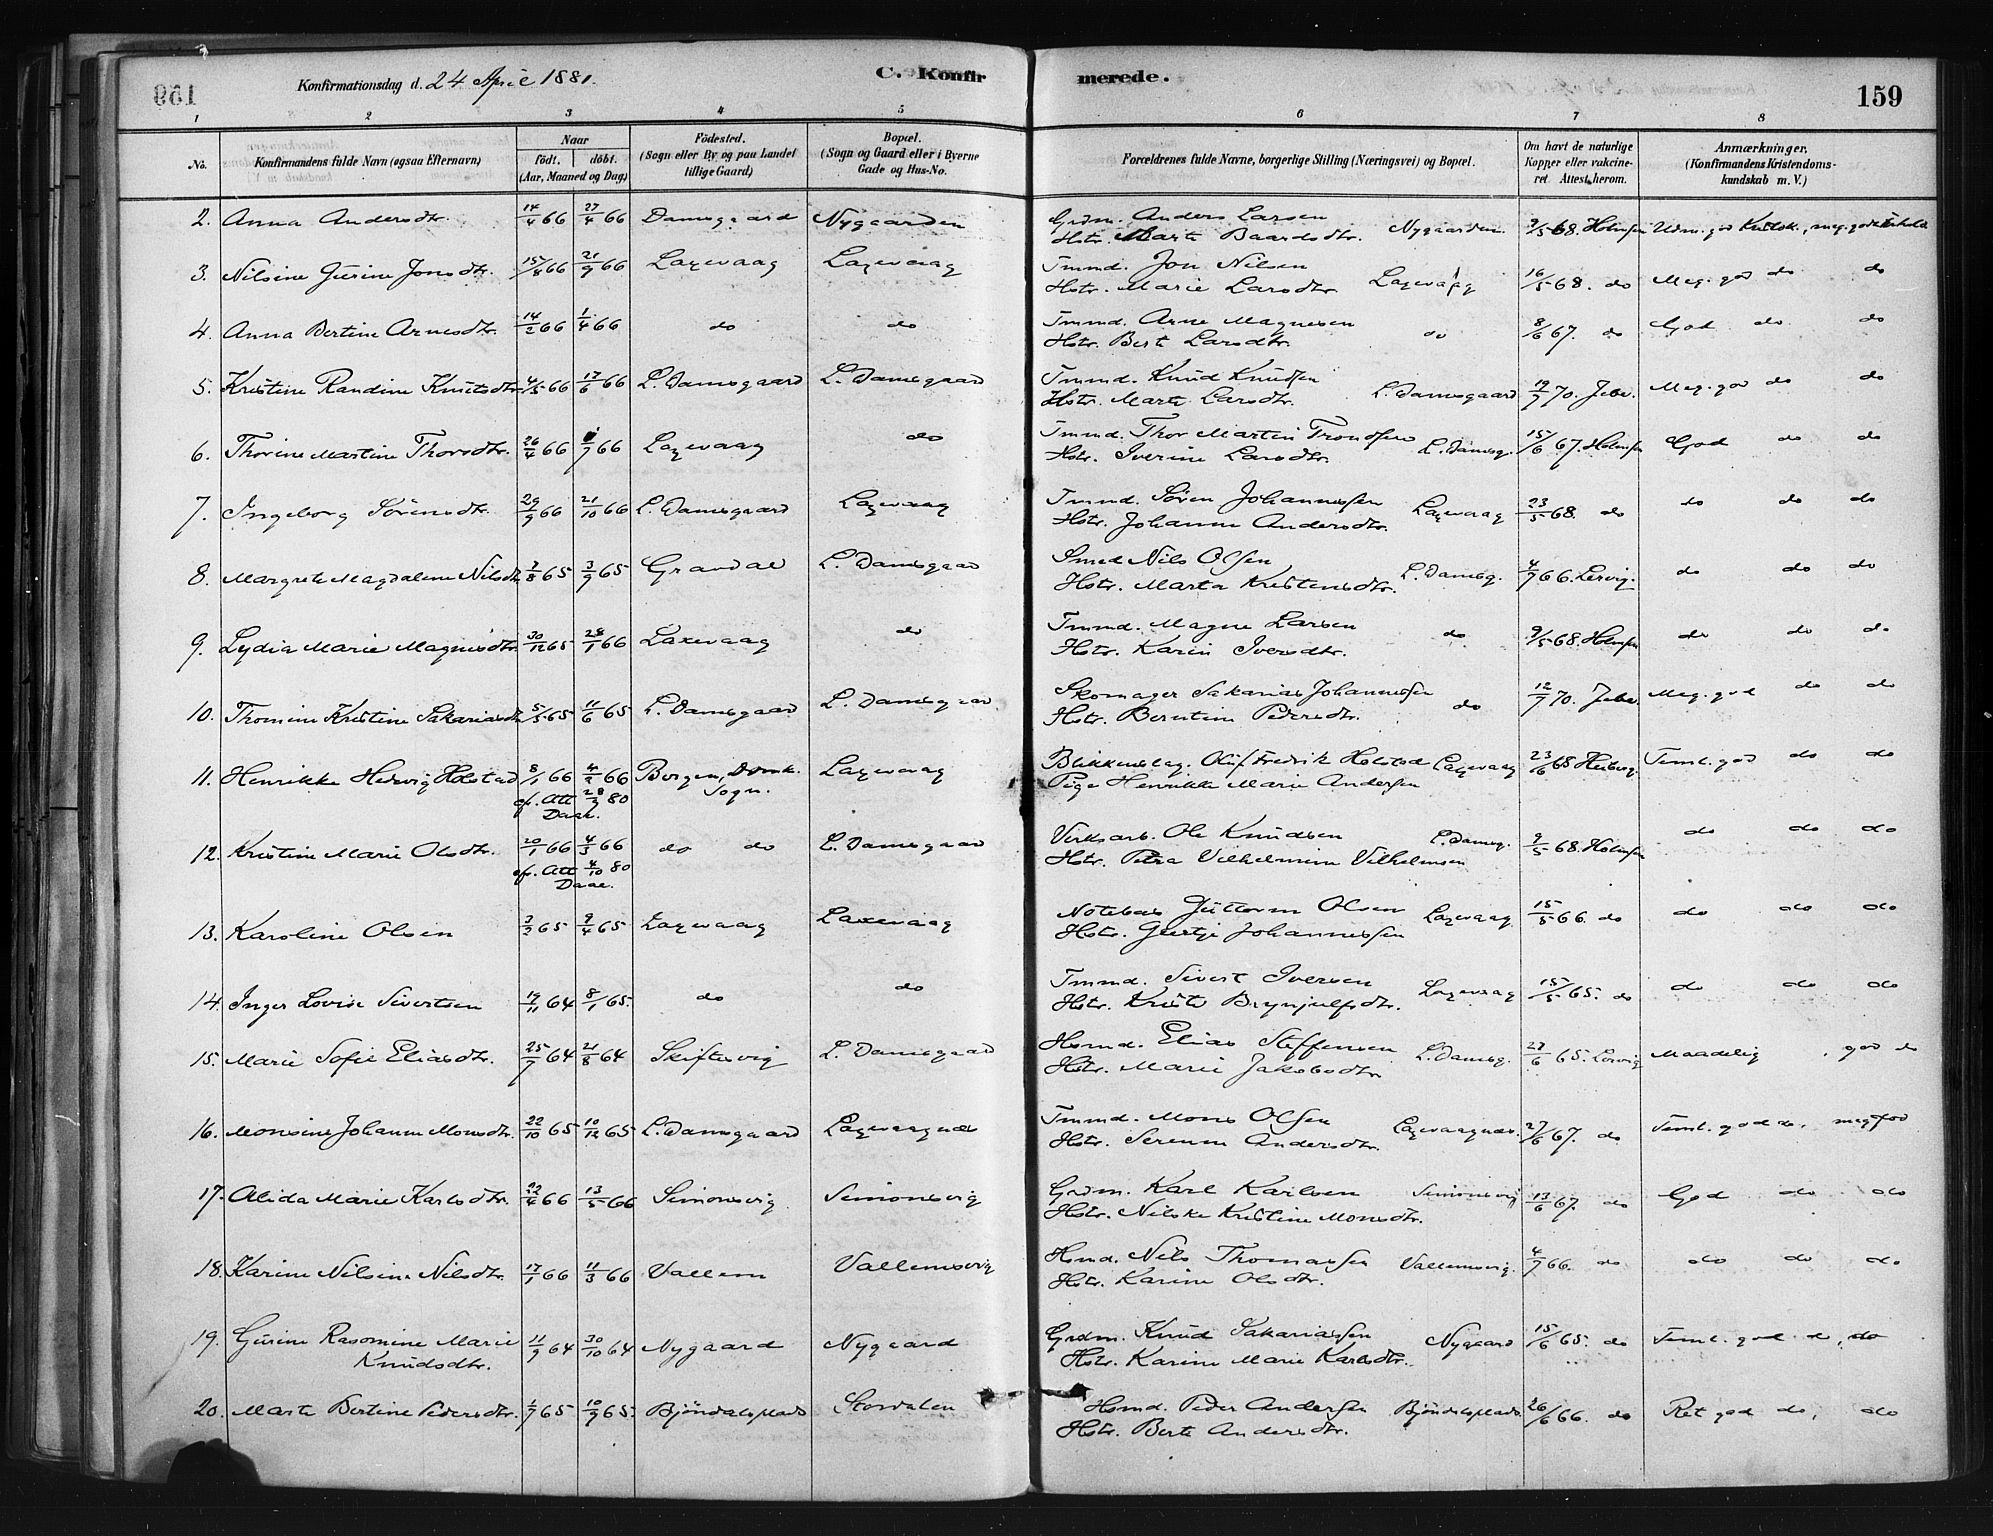 Konfirmationsdag d. 24 April 1881.
C. Konfir
merede.
159
1 2 3 4 5 6 7 8
No.
Konfirmandens fulde Navn (ogsaa Efternavn)
Naar
født, døbt.
(Aar, Maaned og Dag)
Födested.
(Sogn eller By og paa Landet
tillige Gaard)
Bopæl.
(Sogn og Gaard eller i Byerne
Gade og Hus-No.
Forældrenes fulde Navne, borgerlige Stilling (Næringsvei) og Bopæl.
Om havt de naturlige
Kopper eller vakcine-
ret Attest herom.
Anmærkninger,
(Konfirmandens Kristendoms-
kundskab m. V.)
2. Anna Andersdtr. 14/4 66 27/4 66 Damsgaard Nygaarden Grdm. Anders Larsen
Hstr. Marta Baardsdtr. Nygaarden 9/5 68. Holmsen Udm. god Kridsk., meg. god Forhold
3. Nilsine Gurine Jonsdtr. 15/8 66 21/9 66 Laxevaag Laxevaag Tmmd. Jon Nilsen
Hstr. Marie Larsdtr. Laxevaag 16/5 68. do Meg. god do do
4. Anna Bertine Arnesdtr. 14/2 66 1/4 66 do do Tmmd. Arne Magnesen
Hstr. Berta Larsdtr. do 8/6 67. do God do do
5. Kristine Randine Knutsdtr. 4/5 66 17/6 66 L. Damsgaard L. Damsgaard Tmmd. Knud Knudsen
Hstr. Marta Larsdtr. L. Damsgaard 19/7 70. Jebe. Meg. god do do
6. Thorine Martine Thorsdtr. 26/4 66 1/7 66 Laxevaag do Tmmd. Thor Martin Trondsen
Hstr. Iverine Larsdtr. L. Damsg. 15/6 67. Holmsen God do do
7. Ingeborg Sørensdtr. 29/9 66 21/10 66 L. Damsgaard Laxevaag Tmmd. Søren Johannessen
Hstr. Johanne Andersdtr. Laxevaag 23/5 68. do do do do
8. Margrete Magdalene Nilsdtr. 7/8 65 3/9 65 Gravdal L. Damsgaard Smed Nils Olsen
Hstr. Marta Kristensdtr. L. Damsg. 4/7 66. Lervig. do do do
9. Lydia Marie Magnesdtr. 30/12 65 28/1 66 Laxevaag do Tmmd. Magne Larsen
Hstr. Karin Iversdtr. do 9/5 68. Holmsen do do do
10. Thomine Kristine Sakariasdtr. 5/5 65 11/6 65 L. Damsgaard L. Damsgaard Skomager Sakarias Johannessen
Hstr. Berntine Pedersdtr. do 12/7 70. Jebe Meg. god do do
11. Henrikke Hedvig Holstad 8/1 66 4/2 66 Bergen, Domk. Laxevaag Blikkenslag. Oluf Fredrik Holstad Laxevaag 23/6 68 Heiberg. Teml. god do do
cf. Att 28/9 80 Sogn. Pige Henrikke Marie Andersen
Daae.
12. Kristine Marie Olsdtr. 20/1 66 4/3 66 do do L. Damsgaard Virksarb. Ole Knudsen L. Damsg. 9/5 68. Holmsen do do do
cf. Att 4/10 80 Hstr. Petra Vilhelmine Vilhelmsen
Daae.
13. Karoline Olsen 3/2 65 9/4 65 Laxevaag Laxevaag Notebas Guttorm Olsen
Hstr. Geertje Johannessen Laxevaag 15/5 66. do do do do
14. Inger Lovise Sivertsen 19/11 64 8/1 65. do do Tmmd. Sivert Iversen
Hstr. Krista Brynjulfsdtr. Laxevaag 15/5 65. do do do do
15. Marie Sofie Eliasdtr. 25/7 64 21/8 64 Skiftesvig L. Damsgaard Hsmd. Elias Steffensen
Hstr. Marie Jakobsdtr. L. Damsg. 27/6 65. Lervig Maadelig , god do
16. Monsine Johanne Monsdtr. 22/10 65 10/12 65 L. Damsgaard Laxevaagnes Tmmd. Mons Olsen
Hstr. Serenna Andersdtr. Laxevaagnes. 27/6 67. do Teml. god do, meg god
17. Alida Marie Karlsdtr. 22/4 66 13/5 66 Simonsvig Simonsvig Grdm. Karl Karlsen
Hstr. Nilske Kristine Monsdtr. Simonsvig 13/6 67. do God do do
18. Karine Nilsine Nilsdtr. 17/1 66 11/3 66 Vallem Vallemsvig Hsmd. Nils Thomassen
Hstr. Karine Olsdtr. Vallemsvig. 4/7 66. do do do do
19. Gurine Rasmine Marie 11/9 64 30/10 64 Nygaard Nygaard Grdm. Knud Sakariassen Nygaard 15/6 65. do Teml. god do, do
Knudsdtr. Hstr. Karine Marie Karlsdtr.
20. Marta Bertine Pedersdtr. 1/7 65 10/9 65. Bjöndalsplads Stordalen Hsmd. Peder Andersen
Hstr. Berta Andersdtr. Bjöndalsplads. 26/6 66. do Ret god do, do